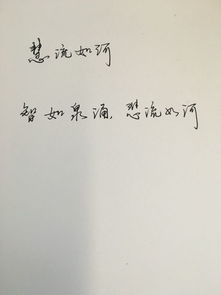 慧流如河
智如泉涌，慧流如河